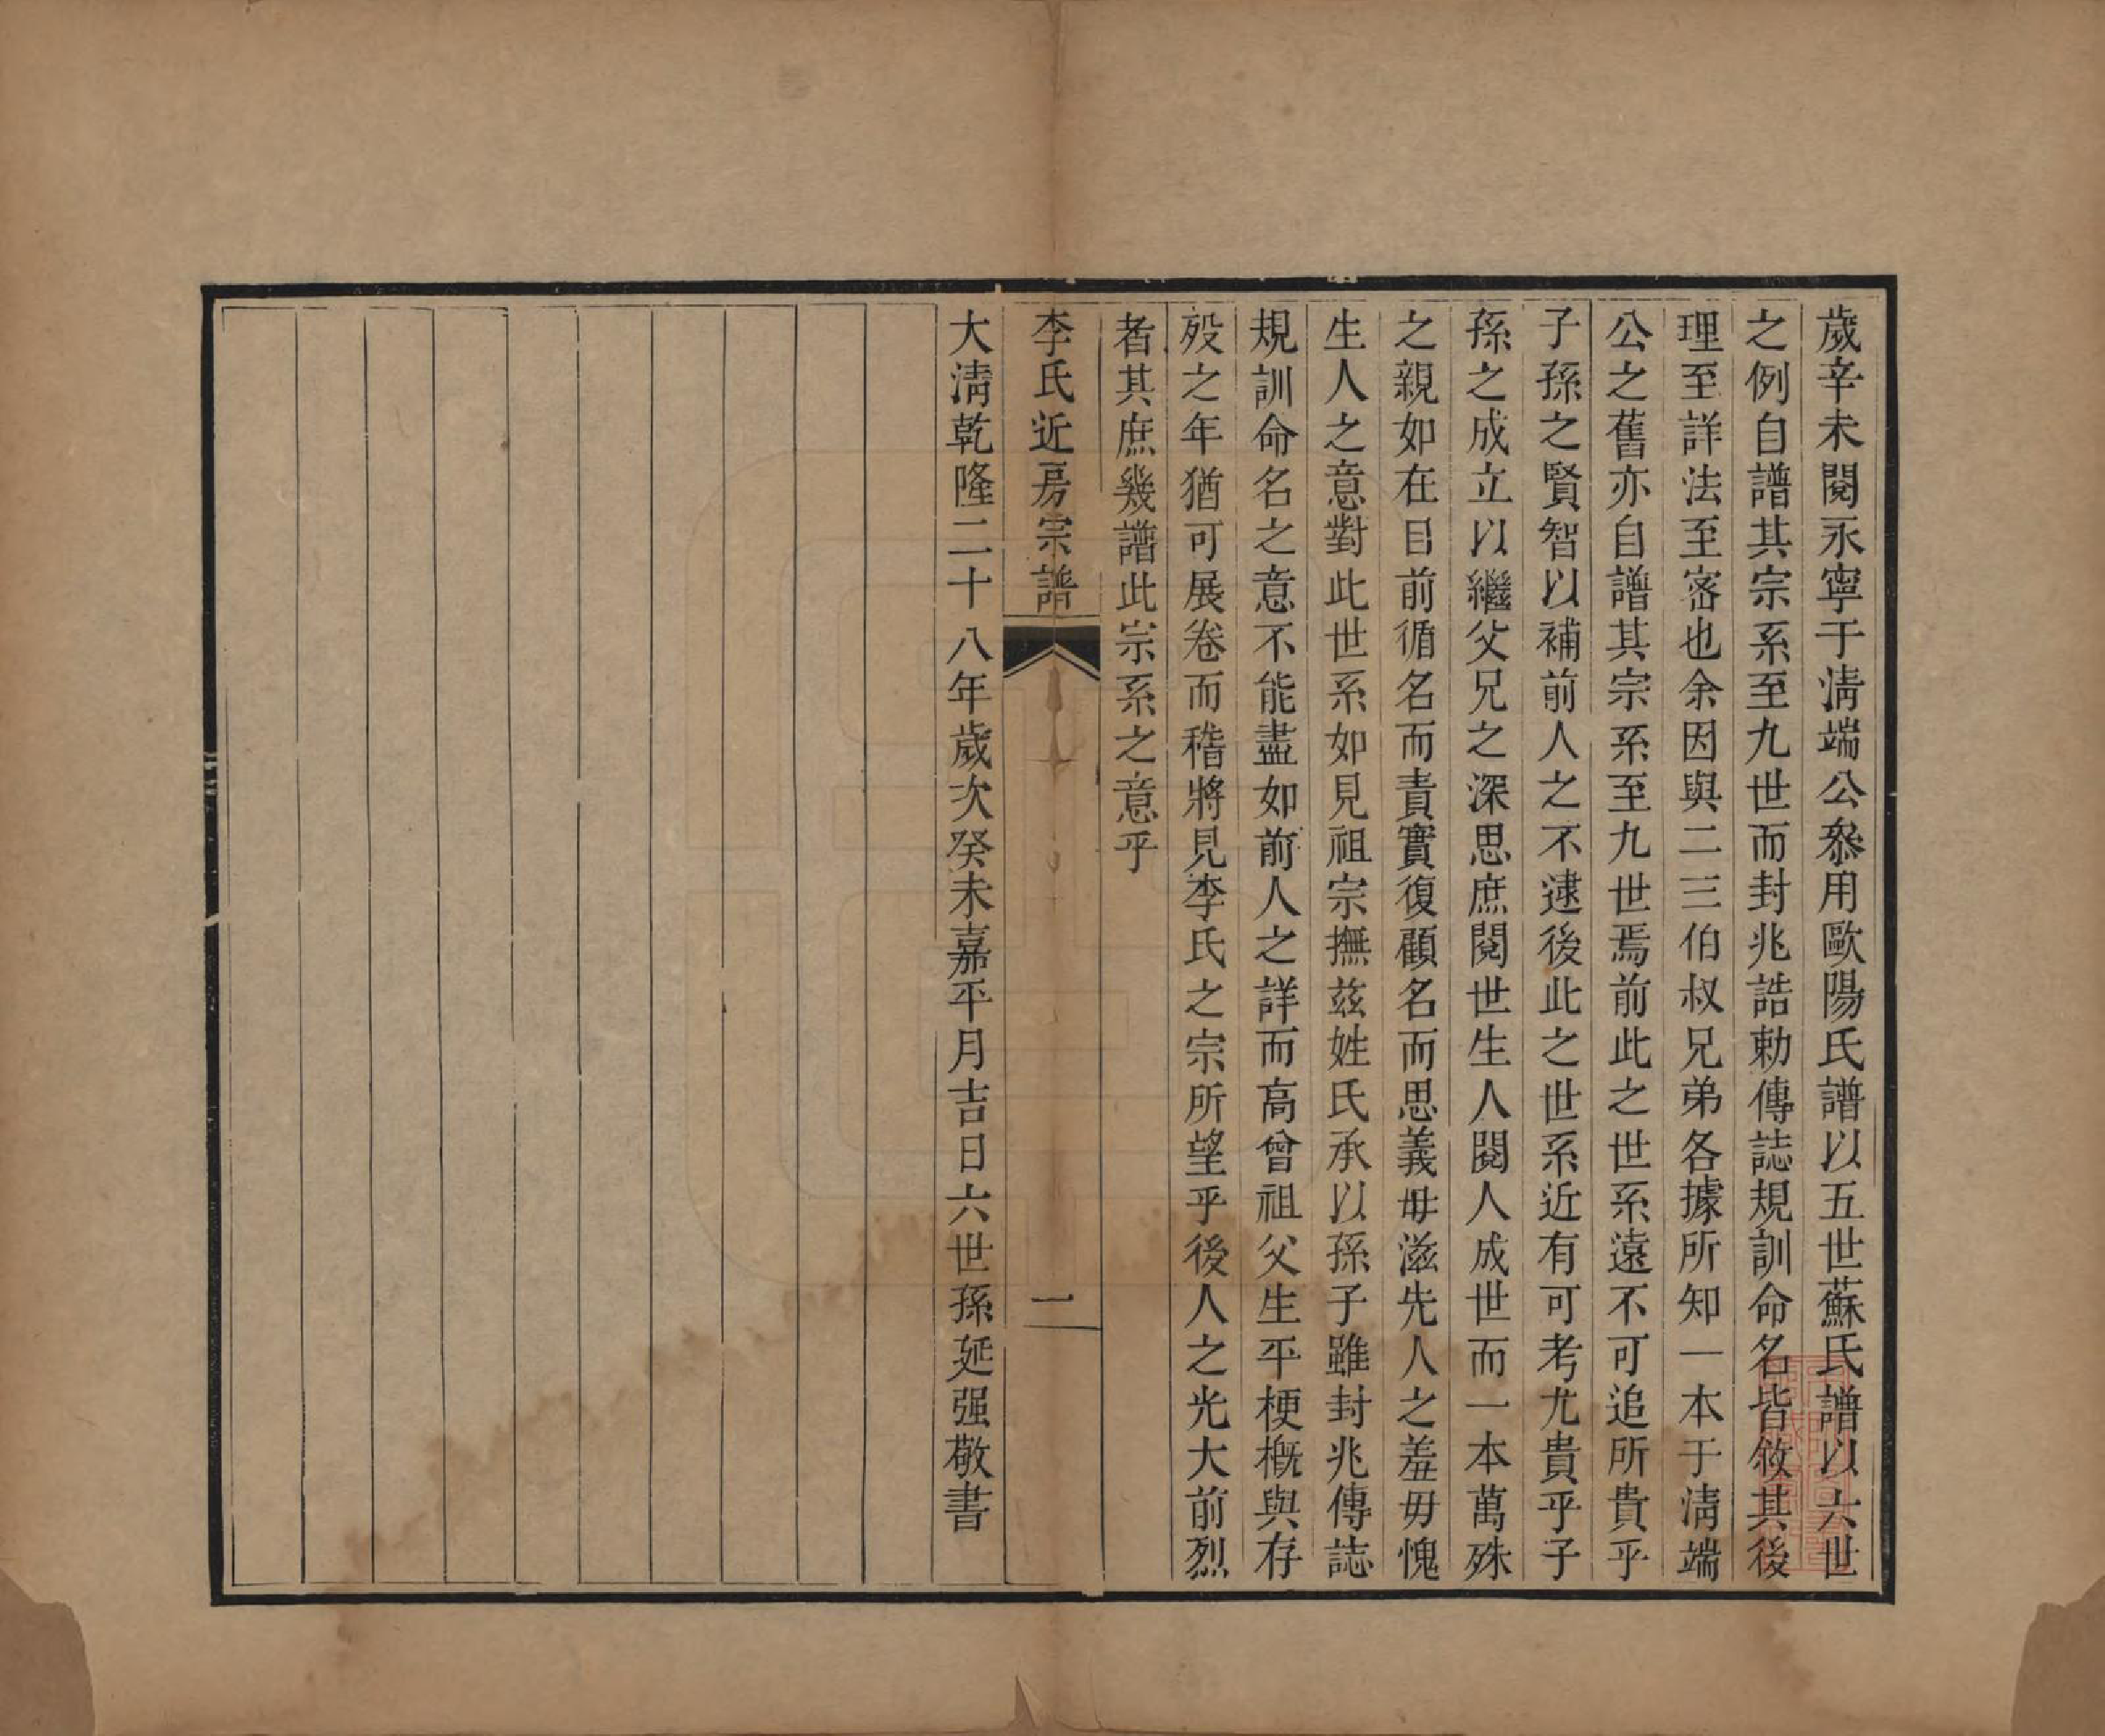 歲辛未閱永寧于淸端公叅用歐陽氏譜以五世蘇氏譜以六世
之例自譜其宗系至九世而封兆誥勅傳誌規訓命名皆敘其後
理至詳法至密也余因與二三伯叔兄弟各據所知一本于淸端
公之舊亦自譜其宗系至九世焉前此之世系遠不可追所貴乎
子孫之賢智以補前人之不逮後此之世系近有可考尤貴乎子
孫之成立以繼父兄之深思庶閱世生人閱人成世而一本萬殊
之親如在目前循名而責實復顧名而思義毋滋先人之羞毋愧
生人之意對此世系如見祖宗撫茲姓氏承以孫子雖封兆傳誌
規訓命名之意不能盡如前人之詳而高曾祖父生平梗概與存
歿之年猶可展卷而稽將見李氏之宗所望乎後人之光大前烈
者其庶幾譜此宗系之意乎
李氏近房宗譜
一
大淸乾隆二十八年歲次癸未嘉平月吉日六世孫延强敬書